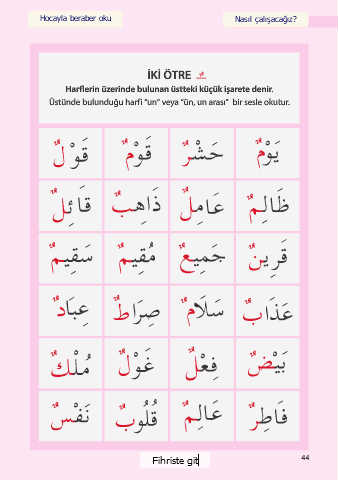 Hocayla beraber oku
Nasıl çalışacağız?
İKİ ÖTRE ـٌ
Harflerin üzerinde bulunan üstteki küçük işarete denir.
Üstünde bulunduğu harfi "un" veya "ün, un arası" bir sesle okutur.
يَوْمٌ حَشْرٌ قَوْمٌ قَوْلٌ
ظَالِمٌ عَامِلٌ ذَاهِبٌ قَائِلٌ
قَرِينٌ جَمِيعٌ مُقِيمٌ سَقِيمٌ
عَذَابٌ سَلَامٌ صِرَاطٌ عِبَادٌ
بَيْضٌ فِعْلٌ غَوْلٌ مُلْكٌ
فَاطِرٌ عَالِمٌ قُلُوبٌ نَفْسٌ
Fihriste git
44